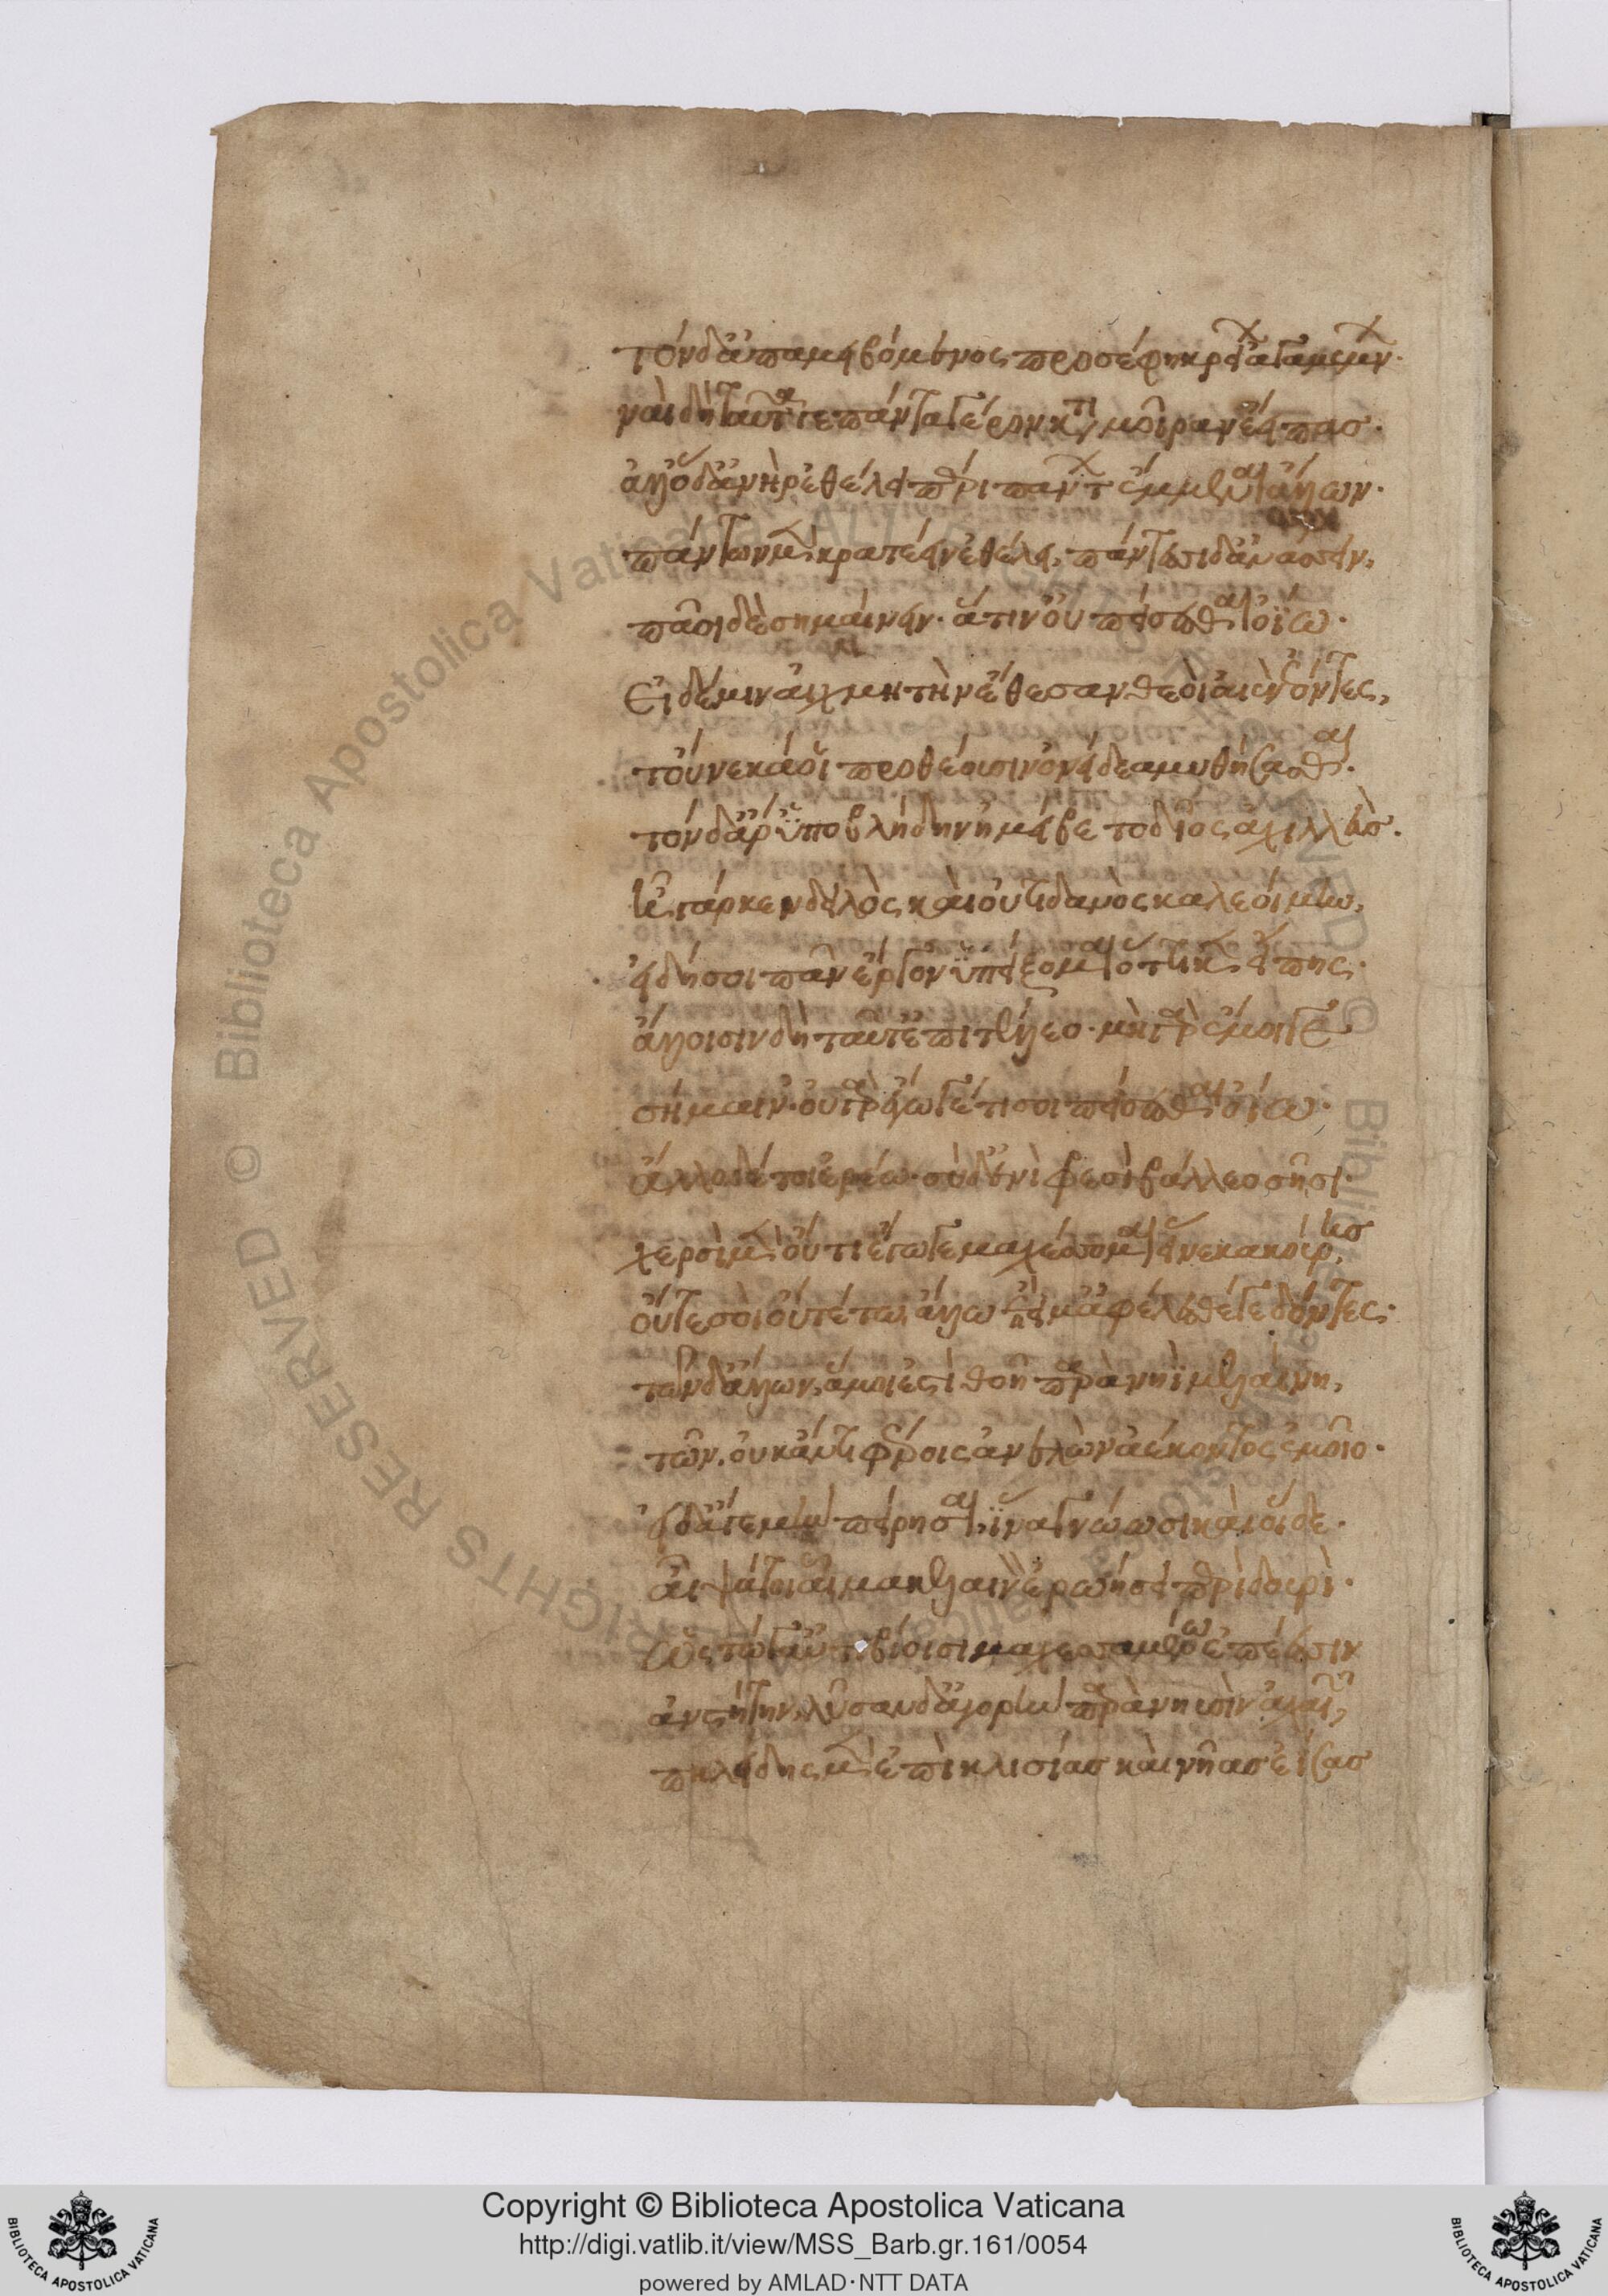 τὸν δ' ἀπαμειβόμενος προσέφη κρείων ἀγαμέμνων·
ναὶ δὴ ταῦτά γε πάντα γέρον κατὰ μοῖραν ἔειπας·
ἀλλ' ὅδ' ἀνὴρ ἐθέλει περὶ πάντων ἔμμεναι ἄλλων·
πάντων μὲν κρατέειν ἐθέλει, πάντεσσι δ' ἀνάσσειν,
πᾶσι δὲ σημαίνειν· ἅ τιν' οὐ πείσεσθαι ὀΐω·
Εἰ δέ μιν αἰχμητὴν ἔθεσαν θεοὶ αἰὲν ἐόντες,
τοὔνεκά οἱ προθέουσιν ὀνείδεα μυθήσασθαι·
τὸν δ' ἄρ' ὑποβλήδην ἠμείβετο δῖος ἀχιλλεύς·
ἦ γάρ κεν δειλός καὶ οὐτιδανὸς καλεοίμην,
εἰ δή σοι πᾶν ἔργον ὑπείξομαι ὅττι κεν εἴπῃς·
ἄλλοισιν δὴ ταῦτ' ἐπιτέλλεο· μὴ γὰρ ἔμοιγε
σήμαιν'· οὐ γὰρ ἐγώ γ' ἔτι σοι πείσεσθαι ὀΐω·
ἄλλο δέ τοι ἐρέω· σὺ δ' ἐνὶ φρεσὶ βάλλεο σῇσι·
χερσὶ μὲν οὔτι ἔγωγε μαχέσσομαι εἵνεκα κούρης,
οὔτε σοὶ οὔτέ τῳ ἄλλῳ ἐπεί μ' ἀφέλεσθέ γε δόντες·
τῶν δ' ἄλλων, ἅ μοι ἐστὶ θοῇ παρὰ νηῒ μελαίνῃ,
τῶν. οὐκ ἄν τι φέροις ἀνελὼν ἀέκοντος ἐμοῖο·
εἰ δ' ἄγε μὴν πείρησαι, ἵνα γνώωσι καὶ οἵδε·
αἶψά τοι αἷμα κελαινὸν ἐρωήσει περὶ δουρί·
Ὣς τώγ' ἀντιβίοισι μαχεσσαμένω ἐπέεσσιν
ἀνστήτην, λῦσαν δ' ἀγορὴν παρὰ νηυσὶν ἀχαιῶν,
πηλείδης μὲν ἐπὶ κλισίας καὶ νῆας ἐΐσας
Copyright © Biblioteca Apostolica Vaticana
http://digi.vatlib.it/view/MSS_Barb.gr.161/0054
powered by AMLAD·NTT DATA